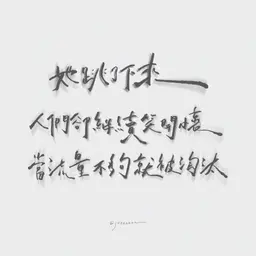 她跳了下來
人們卻繼續笑開懷
當流量不夠就被淘汰